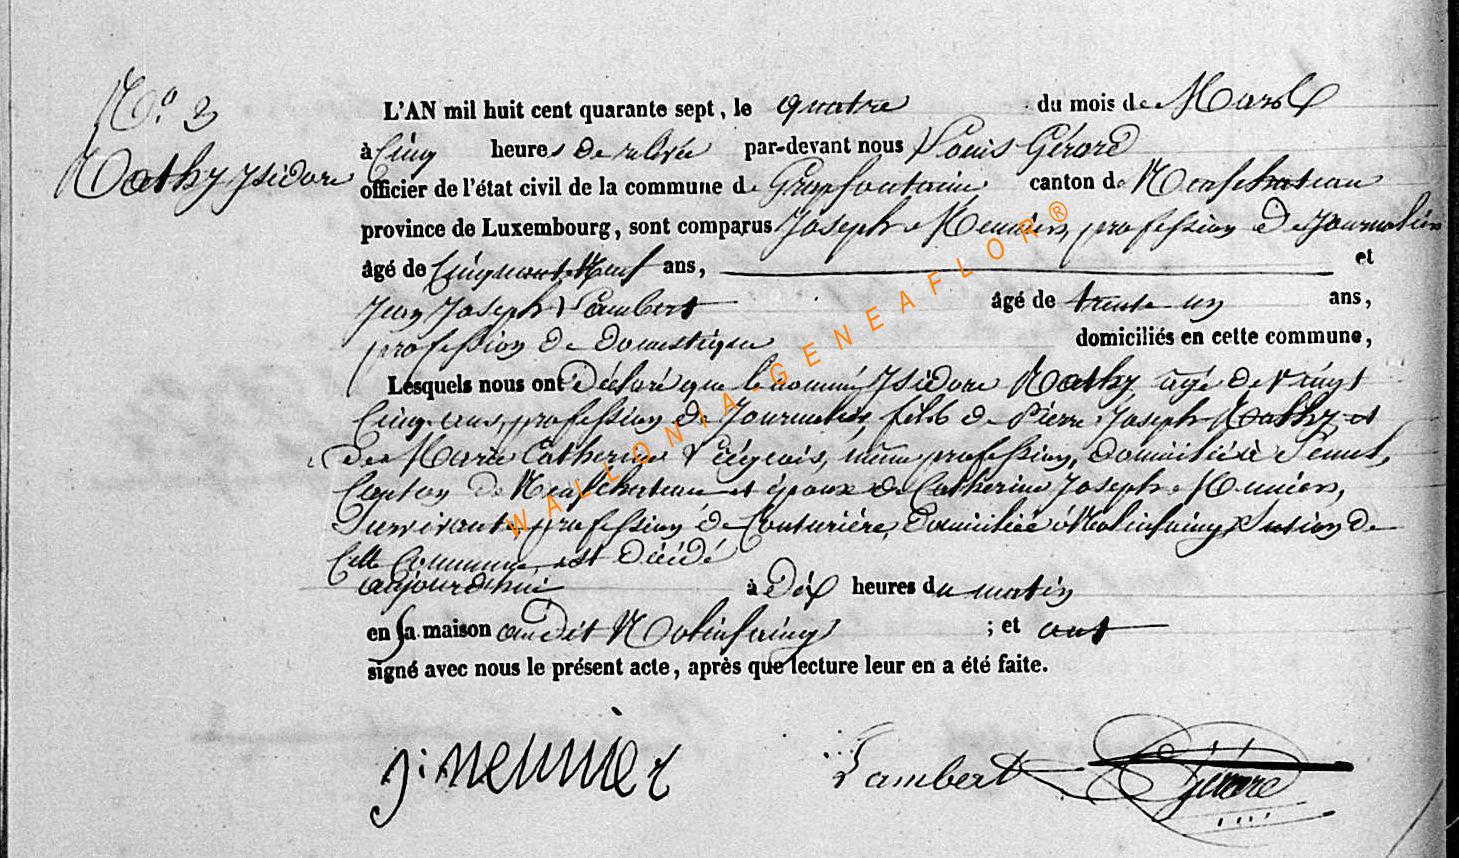 No 3
Mathy Isidore
L'AN mil huit cent quarante sept, le quatre du mois de Mars
à Cinq heures de relevée par-devant nous Louis Gérard
officier de l'état civil de la commune de Grapfontaine canton de Neufchateau
province de Luxembourg, sont comparus Joseph Meunier, profession de Journalier
âgé de Cinquante Neuf ans, et
Jean Joseph Lambert âgé de trente un ans,
profession de domestique domiciliés en cette commune,
Lesquels nous ont déclaré que le nommé Isidore Mathy, agé de vingt
Cinq ans, profession de Journalier, fils de Pierre Joseph Mathy et
de Marie Catherine Liégeois, même profession, domiciliés à
Canton de Neufchateau et époux de Catherine Joseph Meunier,
Survivante, profession de Couturière, domiciliée à Molinfaing, Section de
Cette Commune, est décédé
aujourd'hui à dix heures du matin
en sa maison audit Molinfaing ; et ont
signé avec nous le présent acte, après que lecture leur en a été faite.
j: meunier Lambert Gérard
WALLONIA-GENEAFLOR®